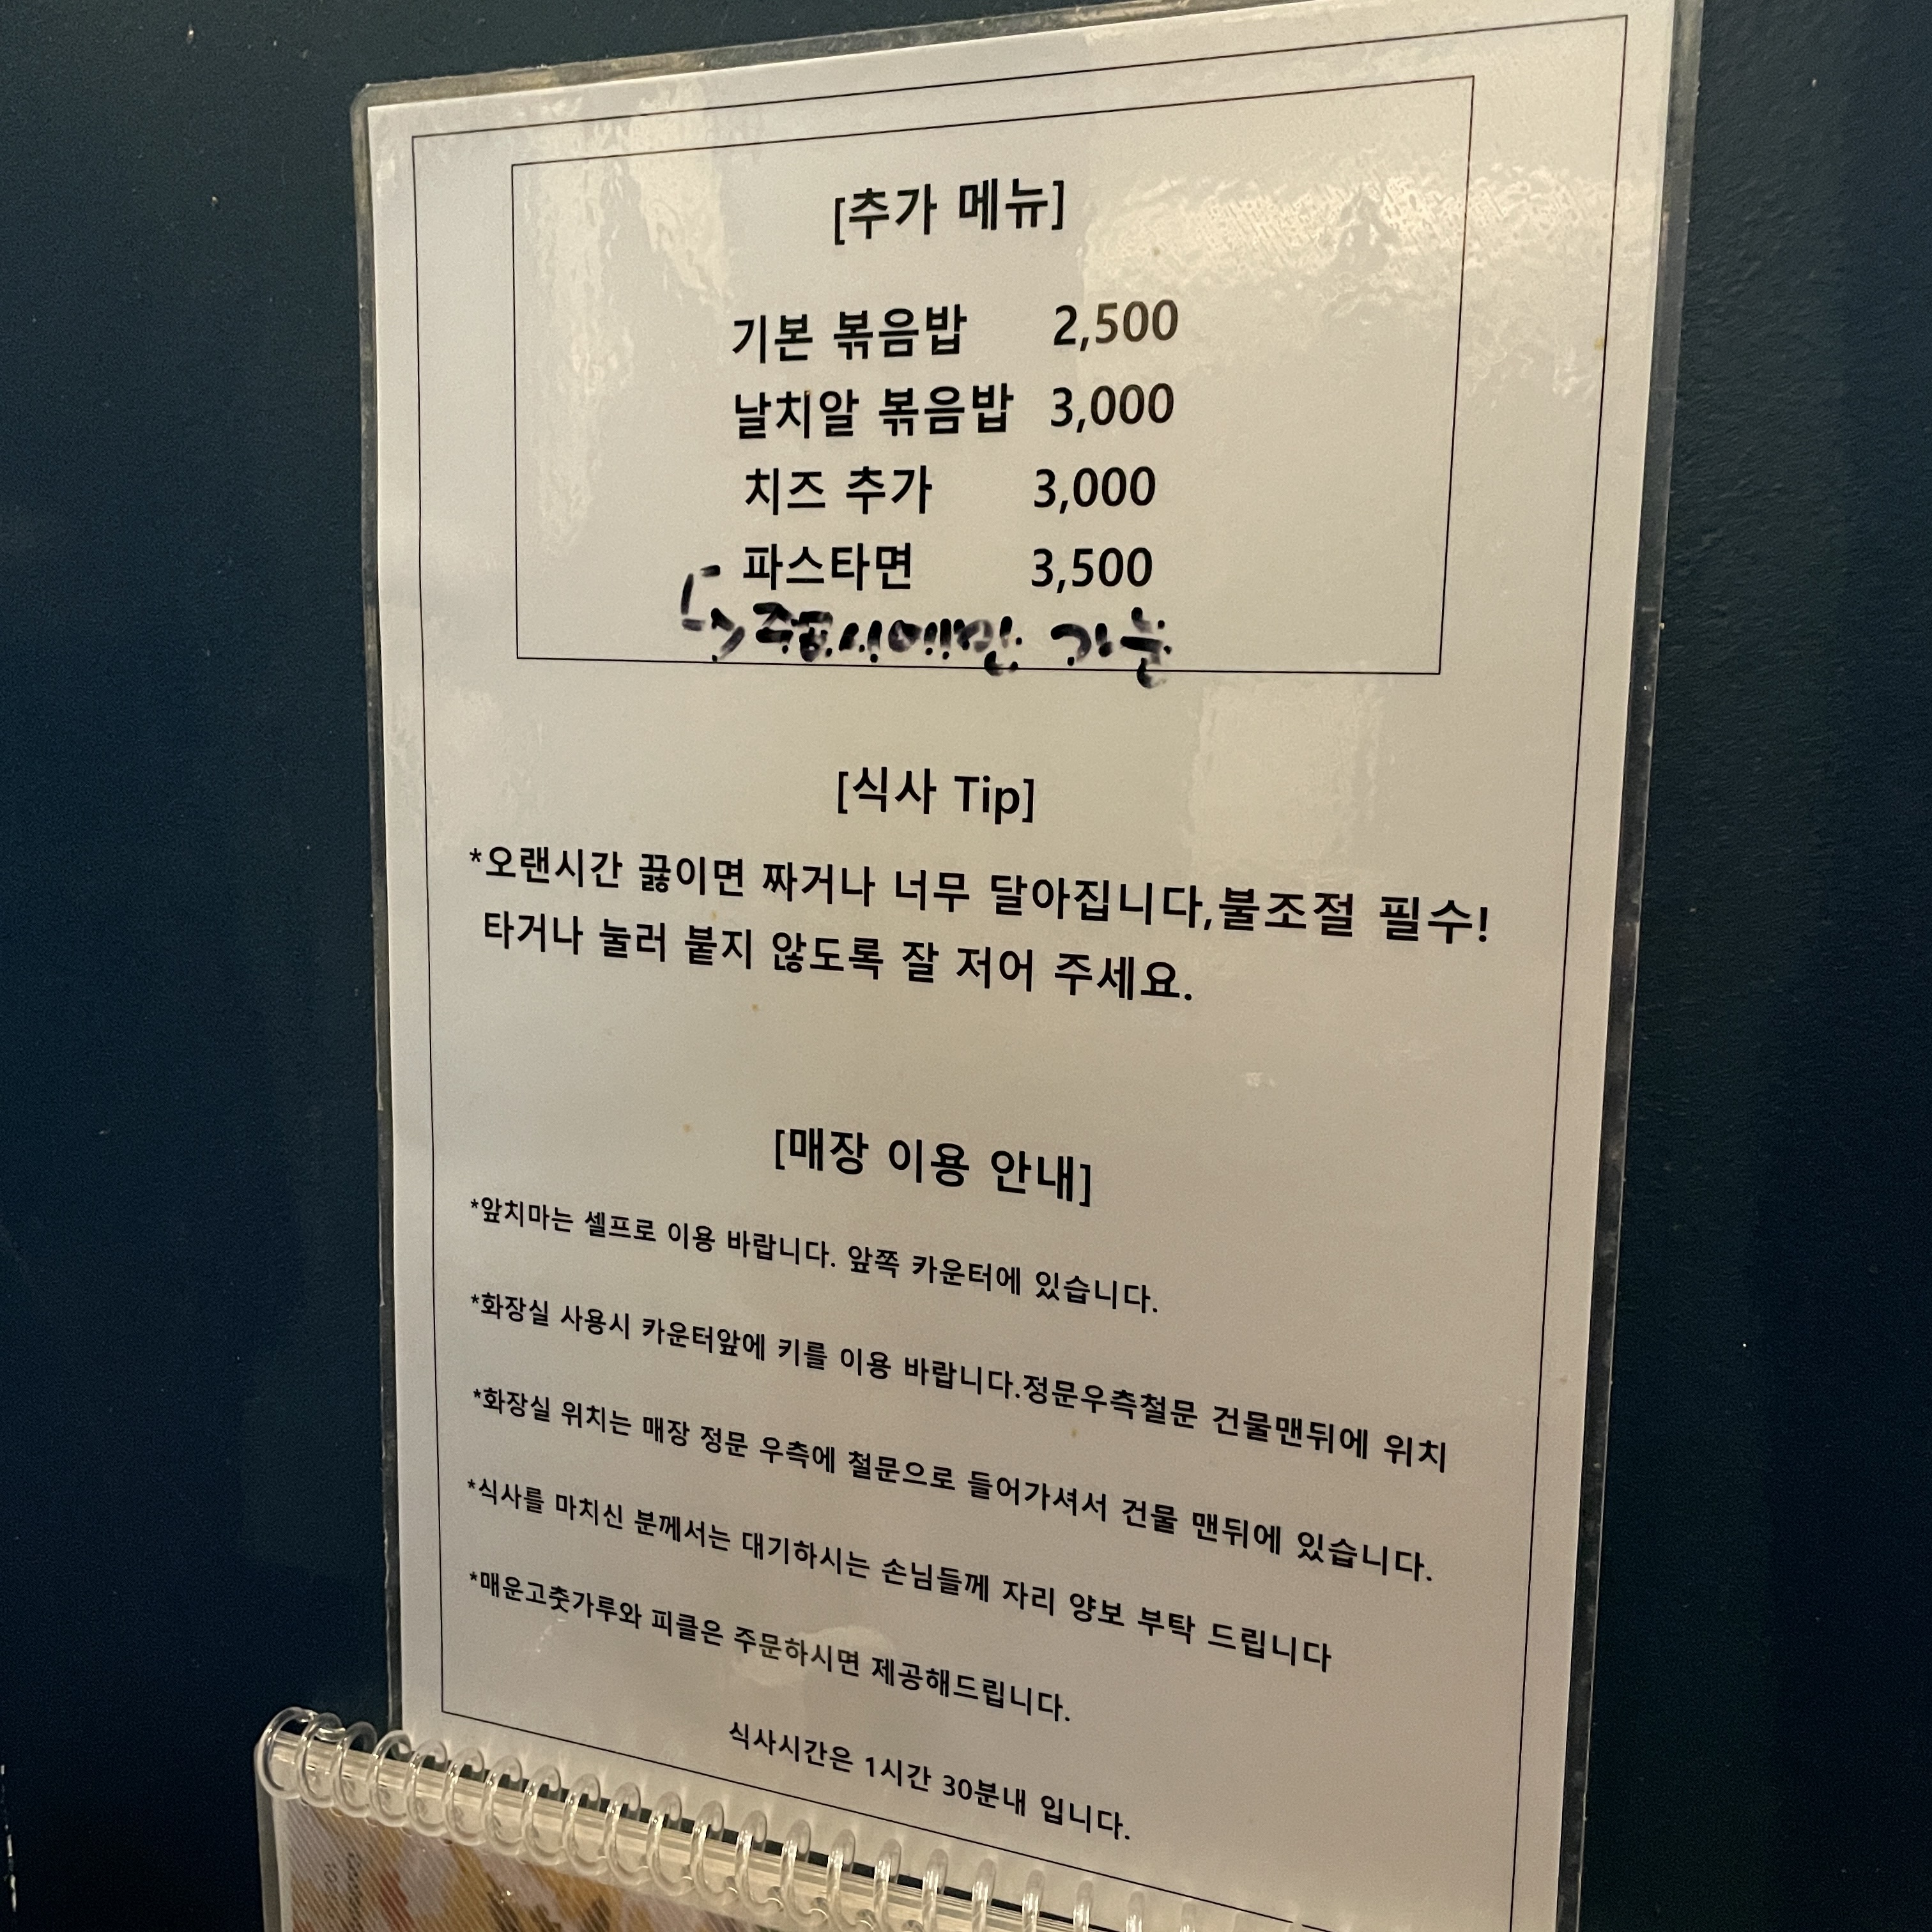 [추가 메뉴]
기본 볶음밥 2,500
날치알 볶음밥 3,000
치즈 추가 3,000
파스타면 3,500
[식사 Tip]
*오랜시간 끓이면 짜거나 너무 달아집니다,불조절 필수!
타거나 눌러 붙지 않도록 잘 저어 주세요.
[매장 이용 안내]
*앞치마는 셀프로 이용 바랍니다. 앞쪽 카운터에 있습니다.
*화장실 사용시 카운터앞에 키를 이용 바랍니다.정문우측철문 건물맨뒤에 위치
*화장실 위치는 매장 정문 우측에 철문으로 들어가셔서 건물 맨뒤에 있습니다.
*식사를 마치신 분께서는 대기하시는 손님들께 자리 양보 부탁 드립니다
*매운고춧가루와 피클은 주문하시면 제공해드립니다.
식사시간은 1시간 30분내 입니다.